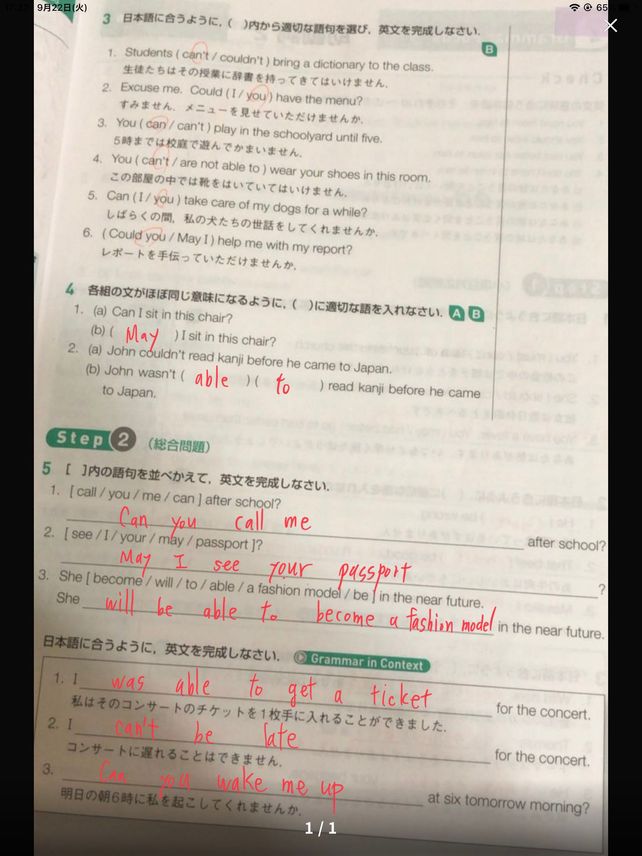 9月22日(火)
65
3 日本語に合うように，( )内から適切な語句を選び，英文を完成しなさい． B
1. Students ( can't / couldn't ) bring a dictionary to the class.
生徒たちはその授業に辞書を持ってきてはいけません．
2. Excuse me. Could ( I / you ) have the menu?
すみません．メニューを見せていただけませんか．
3. You ( can / can't ) play in the schoolyard until five.
5時までは校庭で遊んでかまいません．
4. You ( can't / are not able to ) wear your shoes in this room.
この部屋の中では靴をはいていてはいけません．
5. Can ( I / you ) take care of my dogs for a while?
しばらくの間，私の犬たちの世話をしてくれませんか．
6. ( Could you / May I ) help me with my report?
レポートを手伝っていただけませんか．
4 各組の文がほぼ同じ意味になるように，( )に適切な語を入れなさい． A B
1. (a) Can I sit in this chair?
(b) ( May ) I sit in this chair?
2. (a) John couldn't read kanji before he came to Japan.
(b) John wasn't ( able ) ( to ) read kanji before he came
to Japan.
Step 2 (総合問題)
5 [ ]内の語句を並べかえて，英文を完成しなさい．
1. [ call / you / me / can ] after school?
Can you call me after school?
2. [ see / I / your / may / passport ]?
May I see your passport ?
3. She [ become / will / to / able / a fashion model / be ] in the near future.
She will be able to become a fashion model in the near future.
日本語に合うように，英文を完成しなさい． Grammar in Context
1. I was able to get a ticket for the concert.
私はそのコンサートのチケットを1枚手に入れることができました．
2. I can't be late for the concert.
コンサートに遅れることはできません．
3. Can you wake me up at six tomorrow morning?
明日の朝6時に私を起こしてくれませんか．
1 / 1